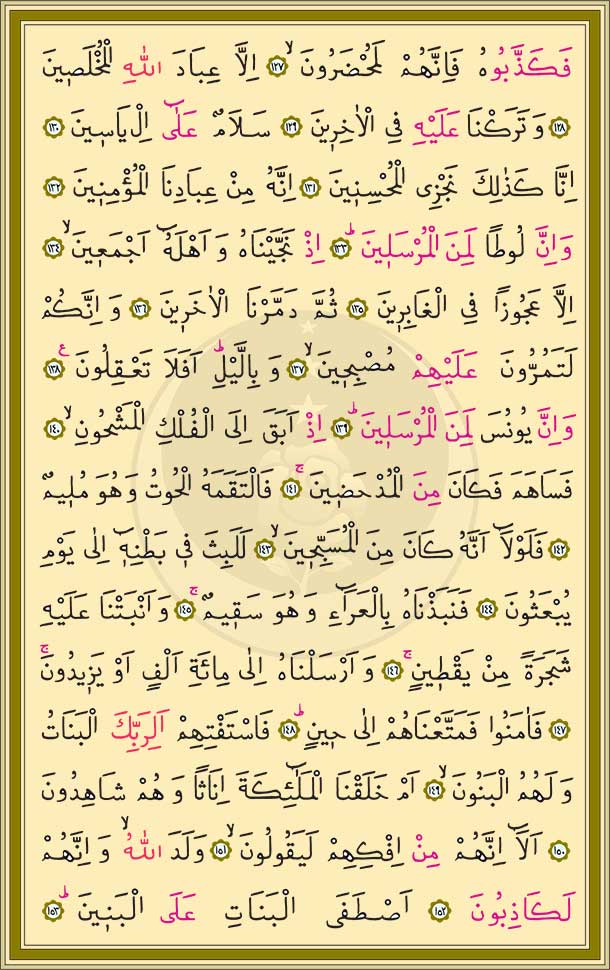 فَكَذَّبُوهُ فَاِنَّهُمْ لَمُحْضَرُونَۙ ﴿١٢٧﴾ اِلَّا عِبَادَ اللّٰهِ الْمُخْلَص۪ينَ
﴿١٢٨﴾ وَتَرَكْنَا عَلَيْهِ فِي الْاٰخِر۪ينَ ﴿١٢٩﴾ سَلَامٌ عَلٰٓى اِلْ يَاس۪ينَ ﴿١٣٠﴾
اِنَّا كَذٰلِكَ نَجْزِي الْمُحْسِن۪ينَ ﴿١٣١﴾ اِنَّهُ مِنْ عِبَادِنَا الْمُؤْمِن۪ينَ ﴿١٣٢﴾
وَاِنَّ لُوطًا لَمِنَ الْمُرْسَل۪ينَۜ ﴿١٣٣﴾ اِذْ نَجَّيْنَاهُ وَاَهْلَهُٓ اَجْمَع۪ينَۙ ﴿١٣٤﴾
اِلَّا عَجُوزًا فِي الْغَابِر۪ينَ ﴿١٣٥﴾ ثُمَّ دَمَّرْنَا الْاٰخَر۪ينَ ﴿١٣٦﴾ وَاِنَّكُمْ
لَتَمُرُّونَ عَلَيْهِمْ مُصْبِح۪ينَۙ ﴿١٣٧﴾ وَبِالَّيْلِۜ اَفَلَا تَعْقِلُونَ۟ ﴿١٣٨﴾
وَاِنَّ يُونُسَ لَمِنَ الْمُرْسَل۪ينَۜ ﴿١٣٩﴾ اِذْ اَبَقَ اِلَى الْفُلْكِ الْمَشْحُونِۙ ﴿١٤٠﴾
فَسَاهَمَ فَكَانَ مِنَ الْمُدْحَض۪ينَۚ ﴿١٤١﴾ فَالْتَقَمَهُ الْحُوتُ وَهُوَ مُل۪يمٌ
﴿١٤٢﴾ فَلَوْلَٓا اَنَّهُ كَانَ مِنَ الْمُسَبِّح۪ينَۙ ﴿١٤٣﴾ لَلَبِثَ ف۪ي بَطْنِه۪ٓ اِلٰى يَوْمِ
يُبْعَثُونَ ﴿١٤٤﴾ فَنَبَذْنَاهُ بِالْعَرَٓاءِ وَهُوَ سَق۪يمٌۚ ﴿١٤٥﴾ وَاَنْبَتْنَا عَلَيْهِ
شَجَرَةً مِنْ يَقْط۪ينٍۚ ﴿١٤٦﴾ وَاَرْسَلْنَاهُ اِلٰى مِائَةِ اَلْفٍ اَوْ يَز۪يدُونَۚ
﴿١٤٧﴾ فَاٰمَنُوا فَمَتَّعْنَاهُمْ اِلٰى ح۪ينٍۜ ﴿١٤٨﴾ فَاسْتَفْتِهِمْ اَلِرَبِّكَ الْبَنَاتُ
وَلَهُمُ الْبَنُونَۙ ﴿١٤٩﴾ اَمْ خَلَقْنَا الْمَلٰٓئِكَةَ اِنَاثًا وَهُمْ شَاهِدُونَ
﴿١٥٠﴾ اَلَٓا اِنَّهُمْ مِنْ اِفْكِهِمْ لَيَقُولُونَۙ ﴿١٥١﴾ وَلَدَ اللّٰهُۙ وَاِنَّهُمْ
لَكَاذِبُونَ ﴿١٥٢﴾ اَصْطَفَى الْبَنَاتِ عَلَى الْبَن۪ينَۜ ﴿١٥٣﴾